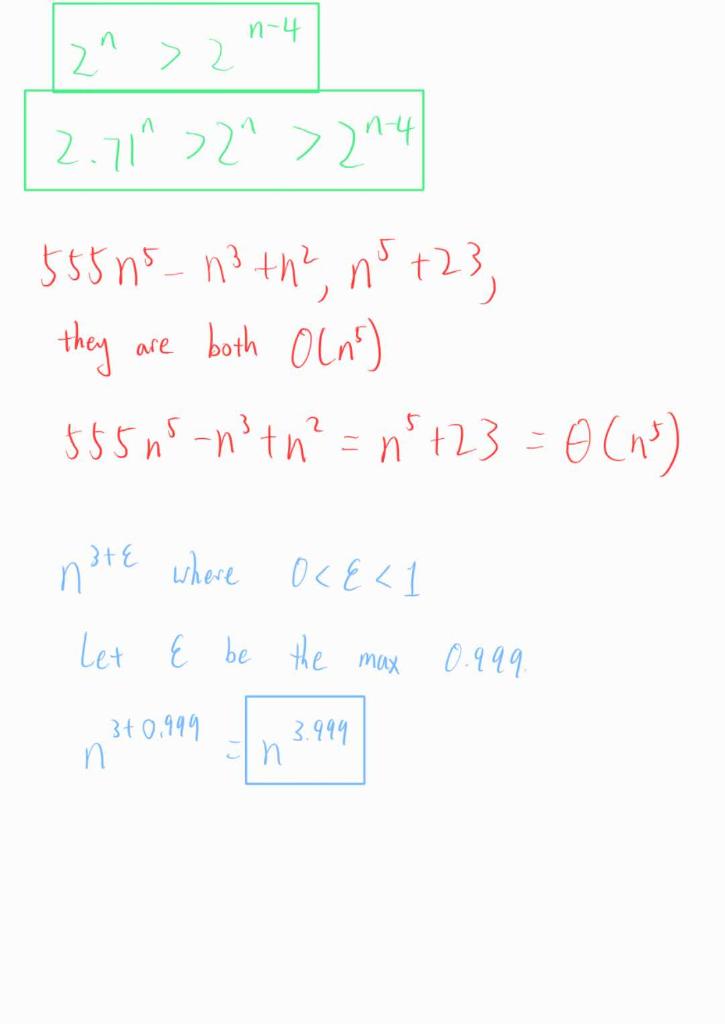 2ⁿ > 2ⁿ⁻⁴
2.71ⁿ > 2ⁿ > 2ⁿ⁻⁴
555n⁵ - n³ + n², n⁵ + 23,
they are both O(n⁵)
555n⁵ - n³ + n² = n⁵ + 23 = θ(n⁵)
n^{3+ε} where 0 < ε < 1
Let ε be the max 0.999.
n^{3+0.999} = n^{3.999}